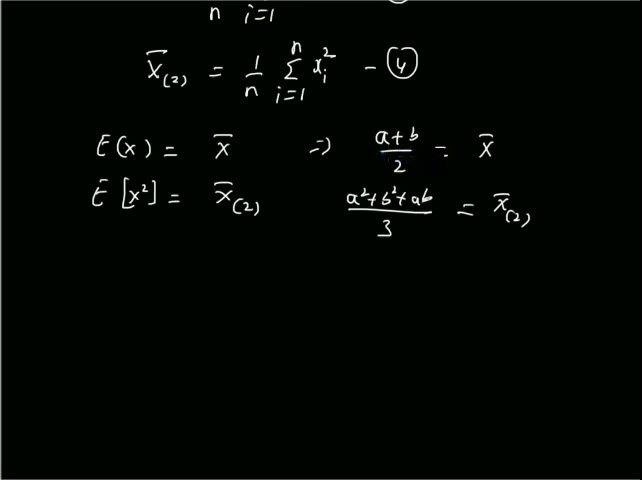 n i=1
x̄₍₂₎ = 1/n Σ_{i=1}^{n} x_i² - ④
E(x) = x̄ ⇒ (a+b)/2 = x̄
E[x²] = x̄₍₂₎ (a²+b²+ab)/3 = x̄₍₂₎